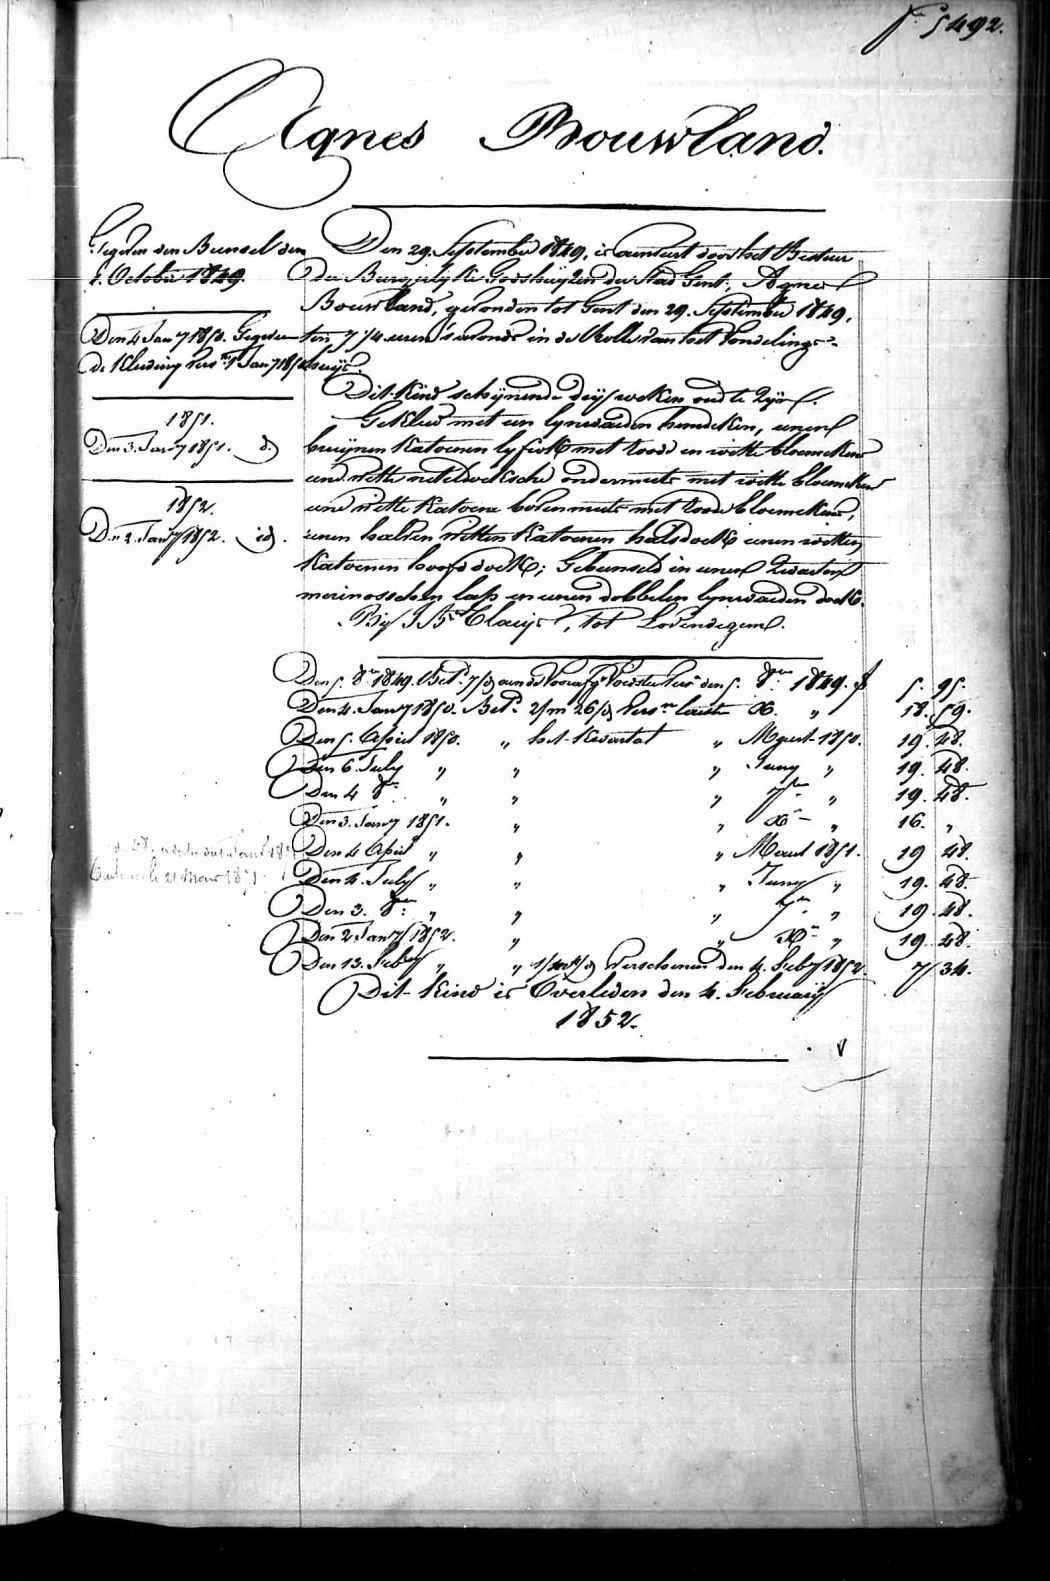 f° 5492.
Agnes Bouwland.
Gegeven den Bunsel den
1. October 1849.
Den 4 Jan.y 1850. Gegeven
de Kleeding 
1851.
Den 3. Jan.y 1851. id
1852.
Den 2. Jan.y 1852. id.
Den 29. September 1849, is aenveerd door het Bestuur
der Burgerlyke Godshuyzen der Stad Gent, Agnes
Bouwland, gevonden tot Gent den 29. September 1849,
ten 7 1/4 uren 's avonds in de Rolle van het Vondelings-
huys.
Dit Kind schynende dry weken oud te Zyn.
Gekleed met een lynwaeden hemdeken, eenen
bruynen Katoenen lyfrok met roode en witte bloemekens
eene witte neteldoeksche ondermuts met witte bloemekens
eene witte Katoene bovenmuts met roode bloemekens,
eenen halven witten Katoenen halsdoek eenen witten
Katoenen hoofddoek; Gebunseld in eenen Zwarten
merinosschen lap en eenen dobbelen lynwaeden doek.
By J. Bte Claeys, tot Lovendegem.
Den 5. 8.er 1849. Bet. den 5. 8.er 1849. f 5. 95.
Den 4. Jan.y 1850. Bet. 2/m 26/d X. " 18. 59.
Den 5. April 1850. " het Kwartal " Maert 1850. 19. 48.
Den 6 July " " " Juny " 19. 48.
Den 4 8.er " " " 7.ber " 19. 48.
Den 3. Jan.y 1851. " " X.er " 16. "
Den 4 April " " " Maert 1851. 19 48.
Den 4. July " " " Juny " 19. 48.
Den 3. 8.er " " " 7.er " 19. 48.
Den 2 Jan.y 1852. " " X.er " 19. 48.
Den 13. Feb.y " " Verschenen den 4. Feb.y 1852. 7 34.
Dit Kind is Overleden den 4. February
1852.